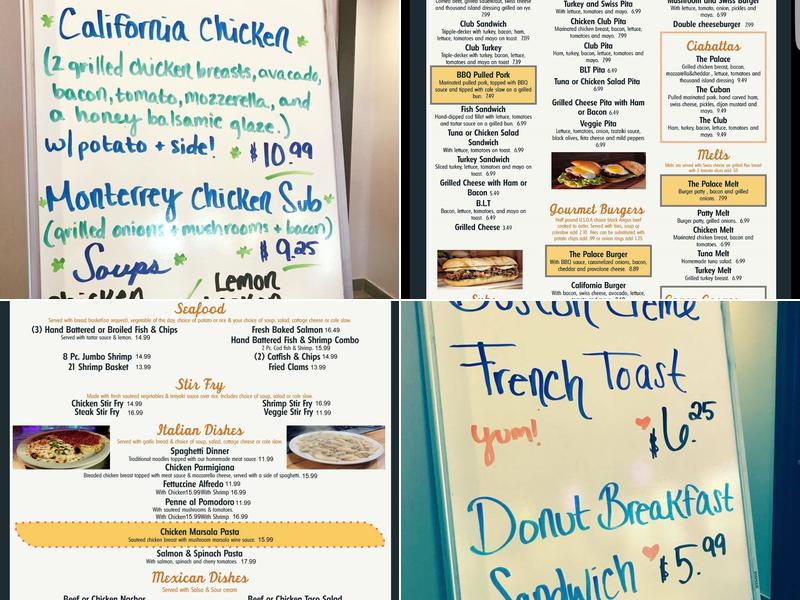 California Chicken
(2 grilled chicken breasts, avocado,
bacon, tomato, mozzerella, and
a honey balsamic glaze.)
w/ potato + side! $10.99
Monterrey Chicken Sub
(grilled onions + mushrooms + bacon)
$9.25
Soups
Lemon
and thousand island dressing grilled on rye.
7.99
Club Sandwich
Tripple-decker with turkey, bacon, ham,
lettuce, tomatoes and mayo on toast. 7.89
Club Turkey
Triple-decker with turkey, bacon, lettuce,
tomatoes and mayo on toast. 7.39
BBQ Pulled Pork
Marinated pulled pork, topped with BBQ
sauce and tipped with cole slaw on a grilled
bun. 7.49
Fish Sandwich
Hand-dipped cod fillet with lettuce, tomatoes
and tartar sauce on a grilled bun. 6.99
Tuna or Chicken Salad
Sandwich
With lettuce, tomatoes on toast. 6.49
Turkey Sandwich
Sliced turkey with lettuce, tomatoes and mayo
on toast. 6.49
Grilled Cheese with Ham or
Bacon 5.49
B.L.T
Bacon, lettuce, tomatoes, and mayo on
toast. 6.49
Grilled Cheese 3.49
Turkey and Swiss Pita
With lettuce, tomatoes and mayo. 6.99
Chicken Club Pita
Marinated chicken breast, bacon, lettuce,
tomatoes and mayo. 7.99
Club Pita
Ham, turkey, bacon, lettuce, tomatoes and
mayo. 7.99
BLT Pita 6.49
Tuna or Chicken Salad Pita
6.99
Grilled Cheese Pita with Ham
or Bacon 6.49
Veggie Pita
Lettuce, tomatoes, onion, tzatziki sauce,
black olives, feta cheese and mild peppers
6.99
Gourmet Burgers
Half pound U.S.D.A choice black Angus beef
cooked to order. Served with fries, soup or
coleslaw add 2.10 Fries can be substituted with
potato chips add .99 or onion rings add 1.25
The Palace Burger
With BBQ sauce, caramelized onions, bacon,
cheddar and provolone cheese. 8.89
California Burger
With bacon, swiss cheese, avocado, lettuce,
With lettuce, tomato, onion, pickles and
mayo. 6.99
Double cheeseburger 7.99
Ciabattas
The Palace
Grilled chicken breast, bacon,
mozzarella&cheddar , lettuce, tomatoes and
thousand island dressing 9.49
The Cuban
Pulled marinated pork, hand carved ham,
swiss cheese, pickles, dijon mustard and
mayo. 9.49
The Club
Ham, turkey, bacon, lettuce, tomatoes and
mayo. 9.49
Melts
Melts are served with Swiss cheese on grilled Rye bread
The Palace Melt
Burger patty , bacon and grilled
onions. 7.99
Patty Melt
Burger patty, grilled onions. 6.99
Chicken Melt
Marinated chicken breast, bacon and
tomatoes. 6.99
Tuna Melt
Homemade tuna salad. 6.99
Turkey Melt
Grilled turkey breast. 6.99
Seafood
Served with bread basket(on request), vegetable of the day, choice of potato or rice & your choice of soup, salad, cottage cheese or cole slaw.
(3) Hand Battered or Broiled Fish & Chips
Served with tartar sauce & lemon. 14.99
8 Pc. Jumbo Shrimp 14.99
21 Shrimp Basket 13.99
Fresh Baked Salmon 16.49
Hand Battered Fish & Shrimp Combo
2 Pc. Cod fish & Shrimp. 15.99
(2) Catfish & Chips 14.99
Fried Clams 13.99
Stir Fry
Made with fresh sauteed vegetables & teriyaki sauce over rice. Includes choice of soup, salad or cole slaw.
Chicken Stir Fry 14.99
Steak Stir Fry 16.99
Shrimp Stir Fry 16.99
Veggie Stir Fry 11.99
Italian Dishes
Served with garlic bread & choice of soup, salad, cottage cheese or cole slaw.
Spaghetti Dinner
Traditional noodles topped with our homemade meat sauce. 11.99
Chicken Parmigiana
Breaded chicken breast topped with meat sauce & mozzarella cheese, served with a side of spaghetti. 15.99
Fettuccine Alfredo 11.99
With Chicken15.99With Shrimp 16.99
Penne al Pomodoro 11.99
With souteed mushrooms & tomatoes.
With Chicken15.99With Shrimp. 16.99
Chicken Marsala Pasta
Sauteed chicken breast with mushroom marsala wine sauce. 15.99
Salmon & Spinach Pasta
With salmon, spinach and cherry tomatoes. 17.99
Mexican Dishes
Served with Salsa & Sour cream
Beef or Chicken Nachos
Beef or Chicken Taco Salad
Boston Creme
French Toast
yum! $6.25
Donut Breakfast
Sandwich $5.99